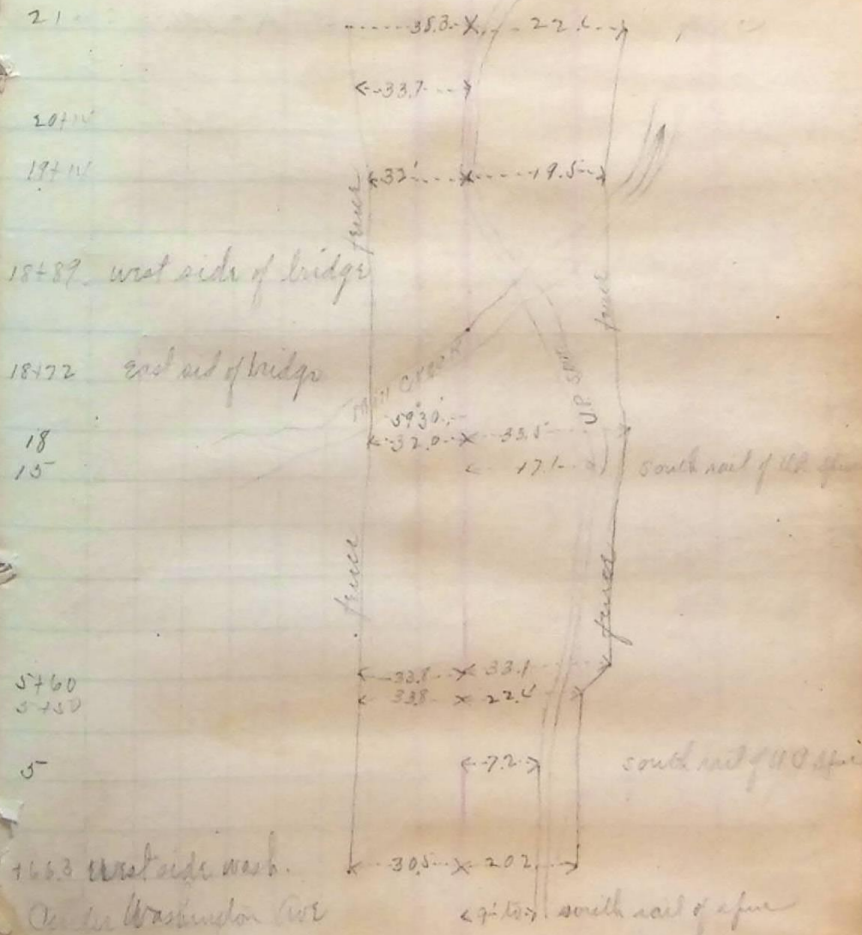 21 35.3 22.6
33.7
20+
19+ 33' 19.5
fence
18+89 west side of bridge
fence
18+72 East sid of bridge
U.P. Spur
59°30'
18 32.0 33.5
15 17.1 south rail of U.P. spur
fence
fence
5+60 33.8 33.1
5+50 33.8 22.6
5 7.2 south rail of U.P. Spur
+66.3 West side wash. 30.5 20.2
Center Washington Ave south rail of spur